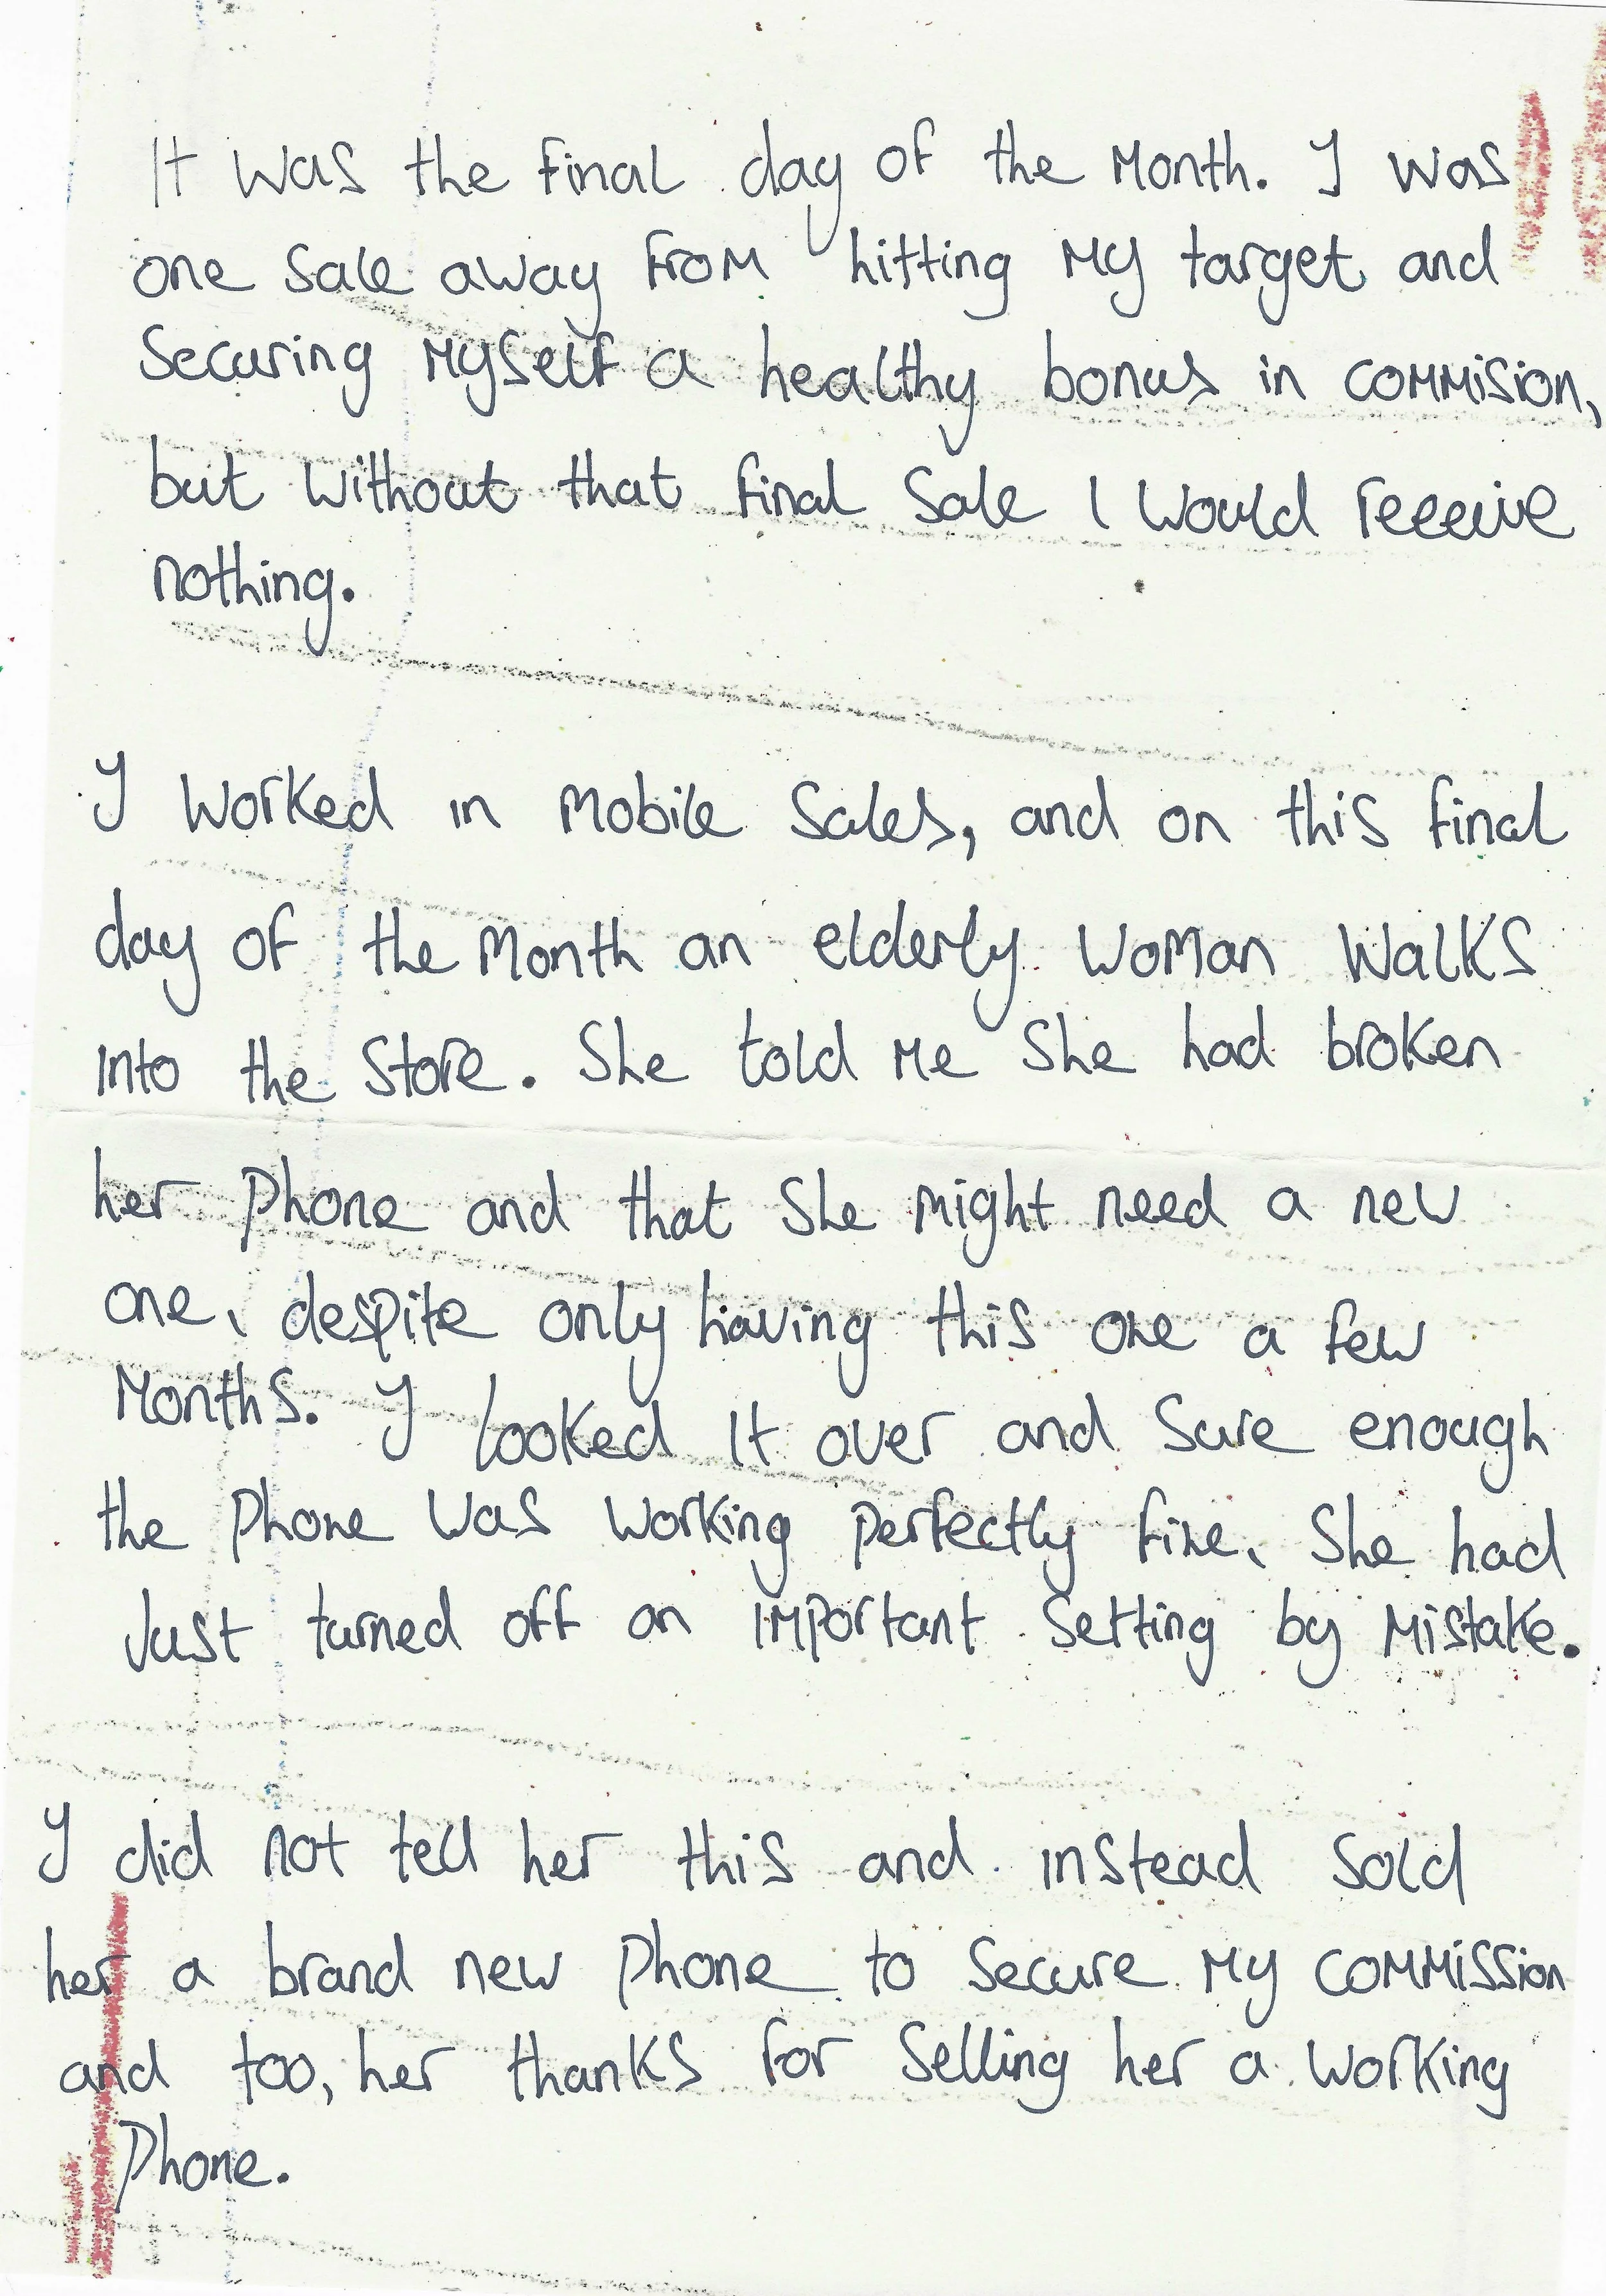 It was the final day of the Month. I was
one sale away from hitting my target and
Securing Myself a healthy bonus in commision,
but without that final Sale I would receive
nothing.
I worked in Mobile Sales, and on this final
day of the Month an elderly woman walks
into the store. She told me She had broken
her phone and that She might need a new
one, despite only having this one a few
Months. I looked it over and Sure enough
the phone was working perfectly fine, She had
Just turned off an important Setting by Mistake.
I did not tell her this and instead sold
her a brand new phone to Secure my commission
and too, her thanks for Selling her a working
Phone.